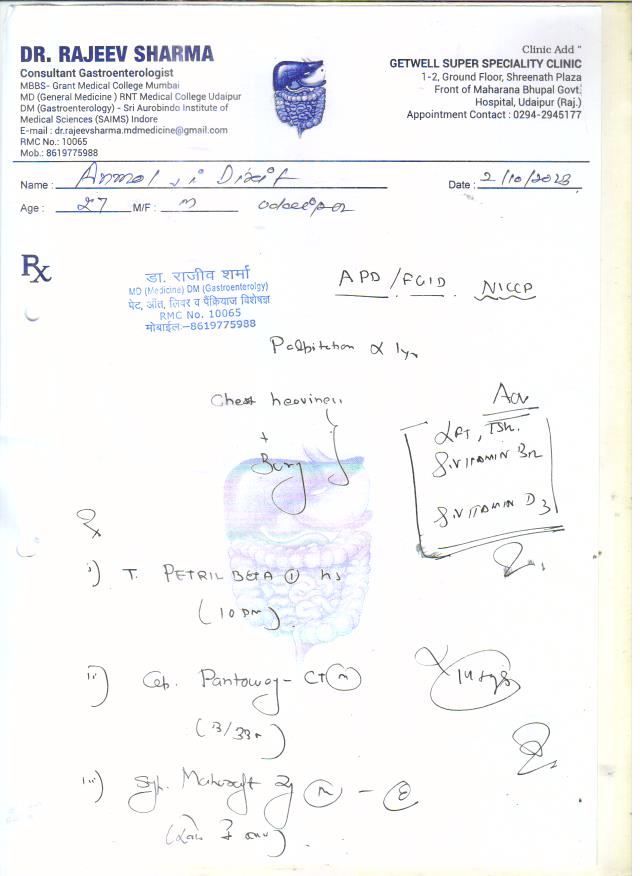 DR. RAJEEV SHARMA
Consultant Gastroenterologist
MBBS- Grant Medical College Mumbai
MD (General Medicine ) RNT Medical College Udaipur
DM (Gastroenterology) - Sri Aurobindo Institute of
Medical Sciences (SAIMS) Indore
E-mail : dr.rajeevsharma.mdmedicine@gmail.com
RMC No.: 10065
Mob.: 8619775988
Clinic Add "
GETWELL SUPER SPECIALITY CLINIC
1-2, Ground Floor, Shreenath Plaza
Front of Maharana Bhupal Govt.
Hospital, Udaipur (Raj.)
Appointment Contact : 0294-2945177
Name : Anmol ji Dixit
Date : 2/10/2023
Age : 27 M/F : M Udaipur
Rx
डा. राजीव शर्मा
MD (Medicine) DM (Gastroenterolgy)
पेट, आँत, लिवर व पैंक्रियाज विशेषज्ञ
RMC No. 10065
मोबाईल:-8619775988
APD / FGID NICCP
Palpitation x 1yr
Chest heaviness
+
Adv
LFT, TSH.
S. VITAMIN B12
S. VITAMIN D3
Rx
i) T. PETRIL BETA ① hs
(10 pm)
ii) Cap. Pantoway - CT
x 14 days
iii) Syp.